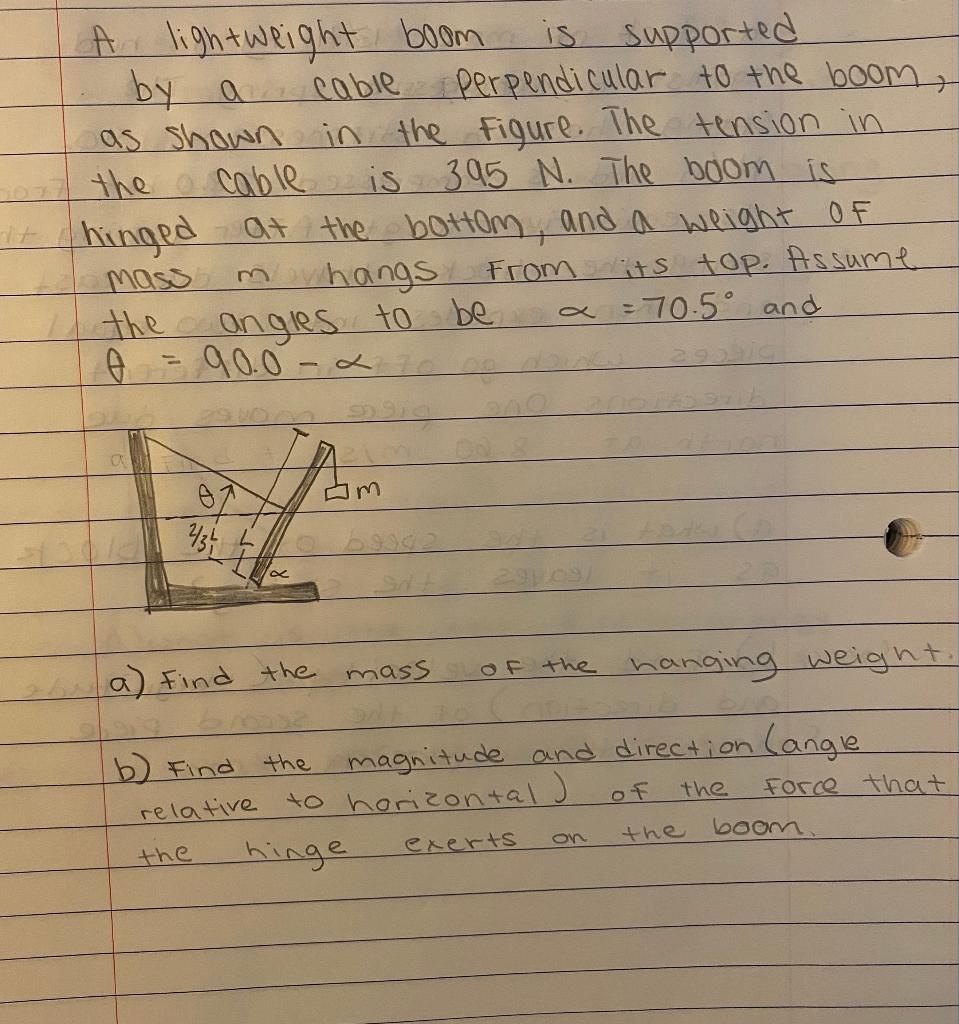 A lightweight boom is supported
by a cable perpendicular to the boom,
as shown in the Figure. The tension in
the cable is 395 N. The boom is
hinged at the bottom, and a weight OF
mass m hangs From its top. Assume
the angles to be α = 70.5° and
θ = 90.0 - α
θ
m
2/3 L
L
α
a) Find the mass of the hanging weight.
b) Find the magnitude and direction (angle
relative to horizontal) of the Force that
the hinge exerts on the boom.